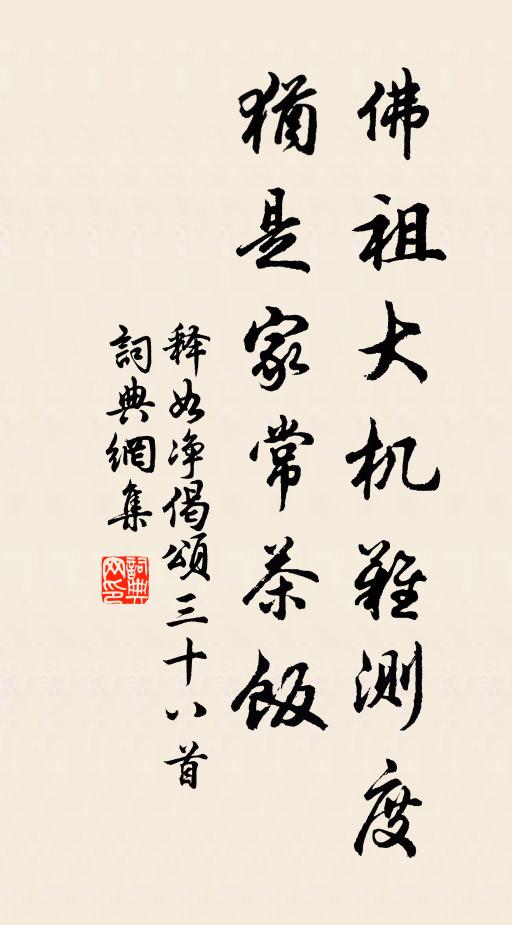 佛祖大机难测度
猶是家常茶飯
释如净偈颂三十八首
詞典網集
詞典网印